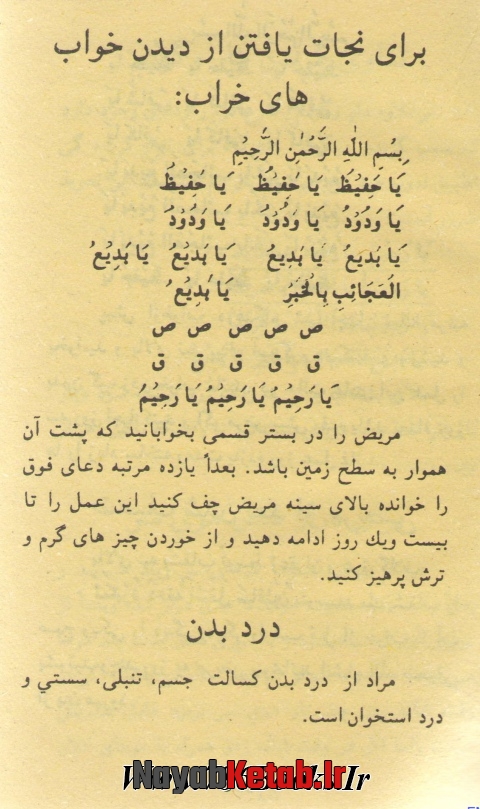 برای نجات یافتن از دیدن خواب
های خراب:
بِسْمِ اللّٰهِ الرَّحْمٰنِ الرَّحِيْمِ
يَا حَفِيْظُ يَا حَفِيْظُ يَا حَفِيْظُ
يَا وَدُوْدُ يَا وَدُوْدُ يَا وَدُوْدُ
يَا بَدِيعَ يَا بَدِيعُ يَا بَدِيعُ يَا بَدِيعُ
الْعَجَائِبِ بِالْخَيْرُ يَا بَدِيعُ
ص ص ص ص ص
ق ق ق ق ق
يَا رَحِيْمُ يَا رَحِيْمُ يَا رَحِيْمُ
مریض را در بستر قسمی بخوابانید که پشت آن
هموار به سطح زمین باشد. بعداً یازده مرتبه دعای فوق
را خوانده بالای سینه مریض چف کنید این عمل را تا
بیست ویك روز ادامه دهید و از خوردن چیز های گرم و
ترش پرهیز کنید.
درد بدن
مراد از درد بدن کسالت جسم، تنبلی، سستي و
درد استخوان است.
NayabKetab.Ir